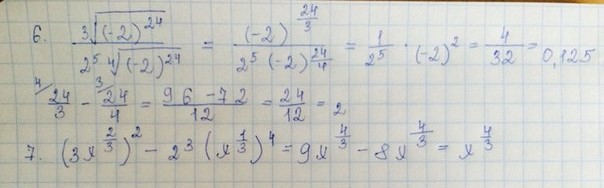 6. ∛((-2)^24) / (2^5 ∜((-2)^24)) = (-2)^(24/3) / (2^5 (-2)^(24/4)) = 1/2^5 · (-2)^2 = 4/32 = 0,125
4/ 24/3 - 3/ 24/4 = (96-72)/12 = 24/12 = 2
7. (3x^(2/3))^2 - 2^3 (x^(1/3))^4 = 9x^(4/3) - 8x^(4/3) = x^(4/3)